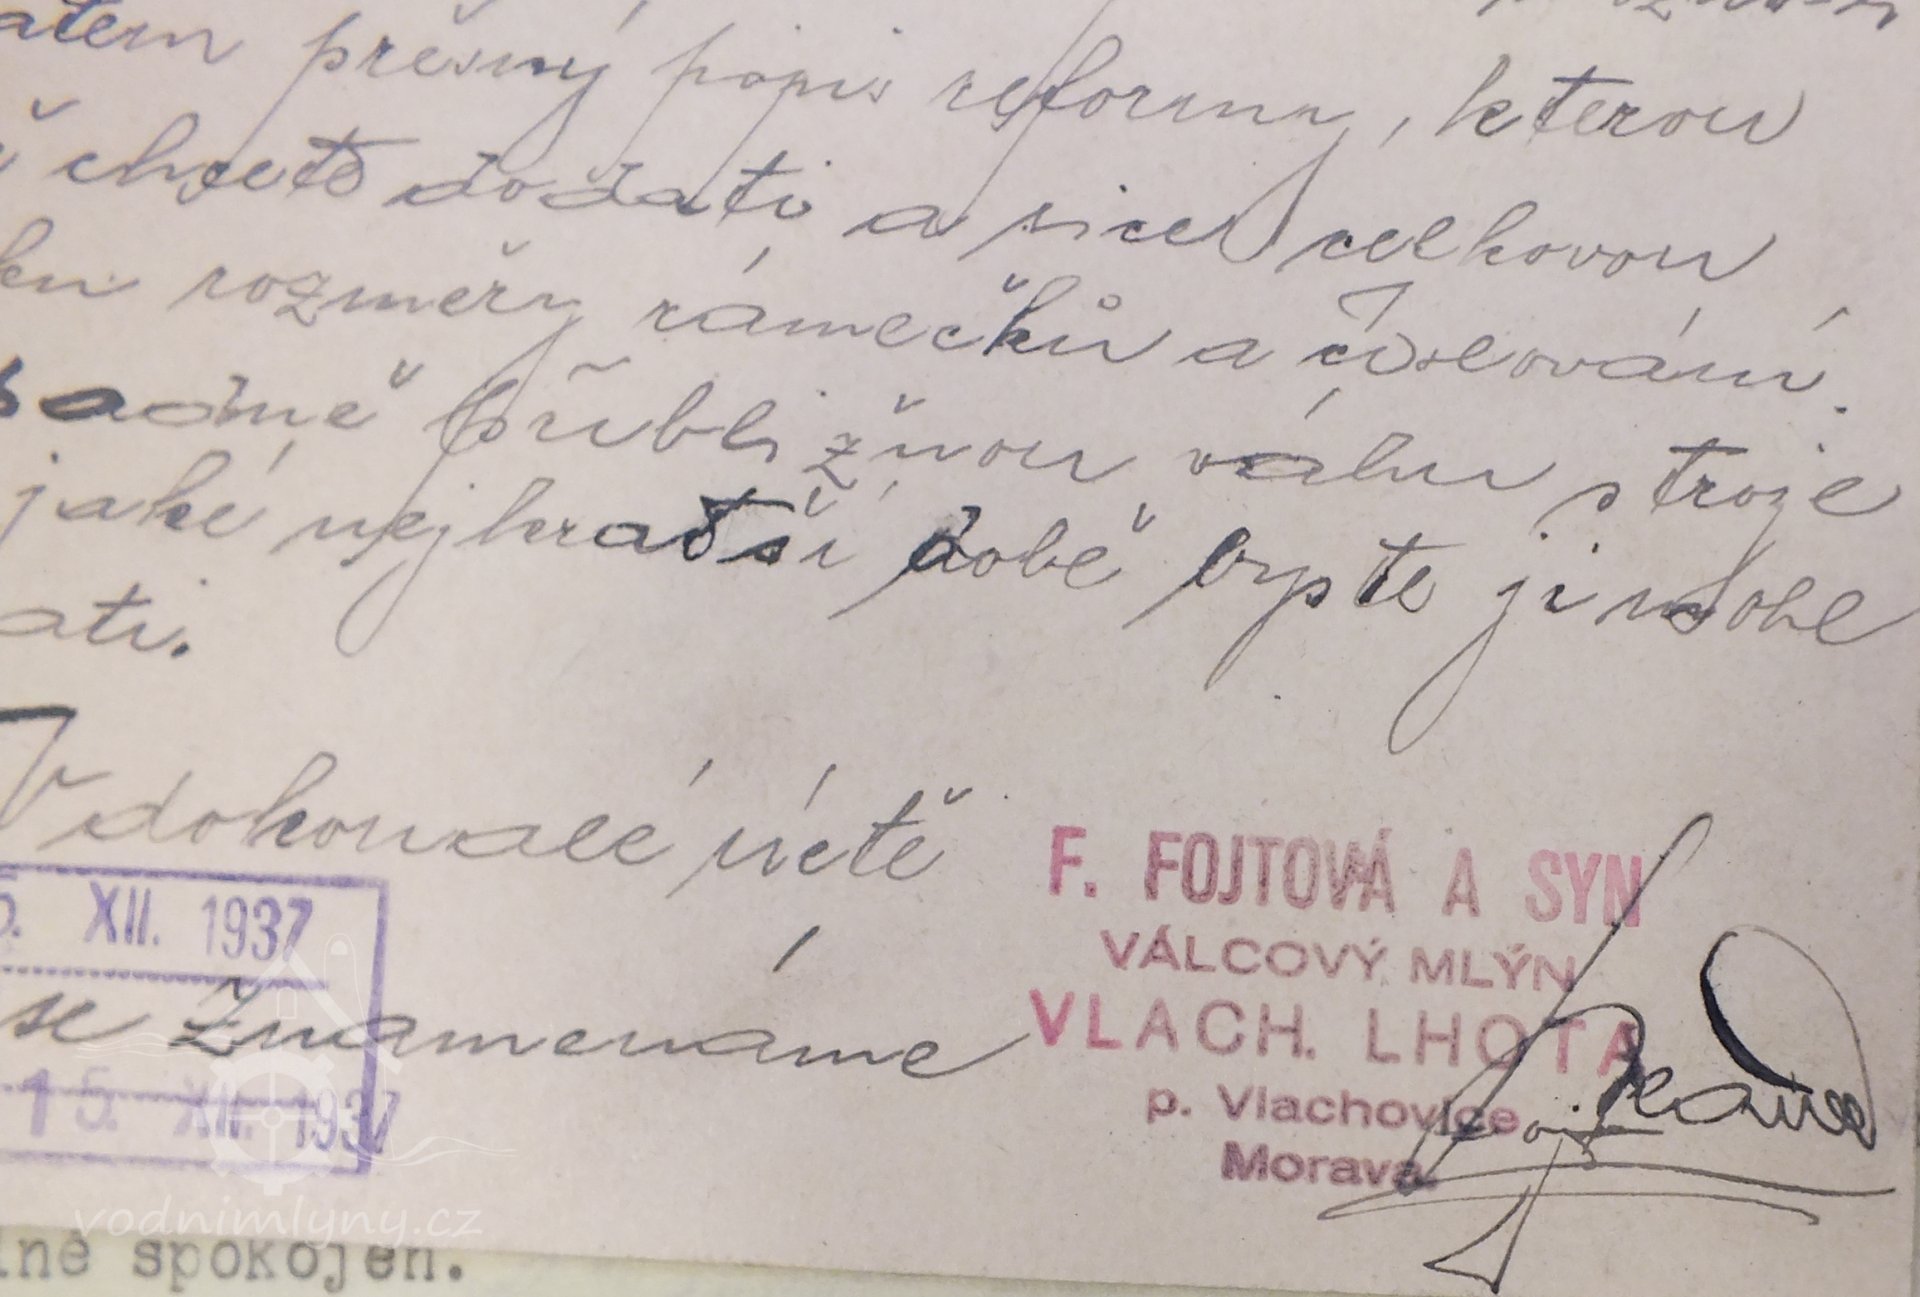 přesný popis reformy, kterou
chcete dodati a sice celkovou
rozměry rámečků a číslování.
přibližnou váhu stroje
jaké nejkratší době byste ji mohl
ati.
V dokonalé úctě
5. XII. 1937
se znamenáme
15. XII. 1937
F. FOJTOVÁ A SYN
VÁLCOVÝ MLÝN
VLACH. LHOTA
p. Vlachovice
Morava.
vodnimlyny.cz
lně spokojen.